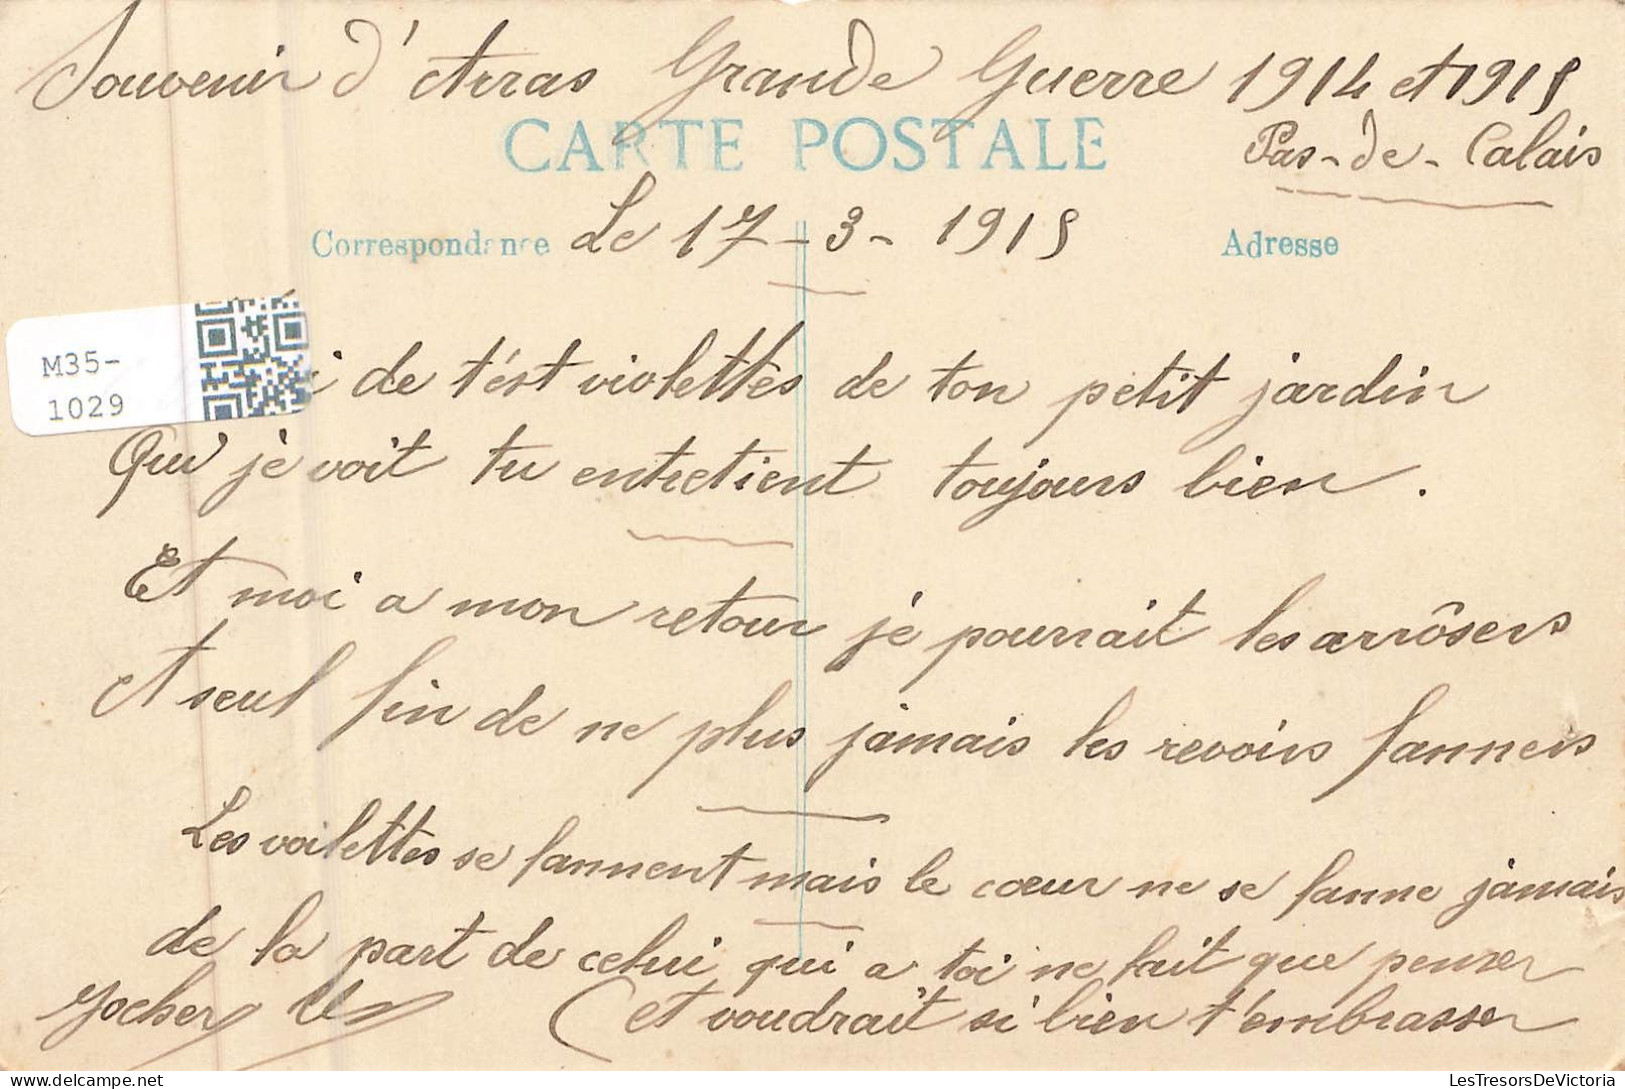 Souvenir d'Arras Grande Guerre 1914 et 1915
CARTE POSTALE
Pas-de-Calais
Correspondance Le 17-3-1915
Adresse
M35-
1029
de t'est violettes de ton petit jardin
Qui je voit tu entretient toujours bien.
Et moi a mon retour je pourrait les arrôsers
et seul fin de ne plus jamais les revoirs fanners
Les voilettes se fannent mais le cœur ne se fanne jamais
de la part de celui qui a toi ne fait que penser
(et voudrait si bien t'embrasser
LesTresorsDeVictoria